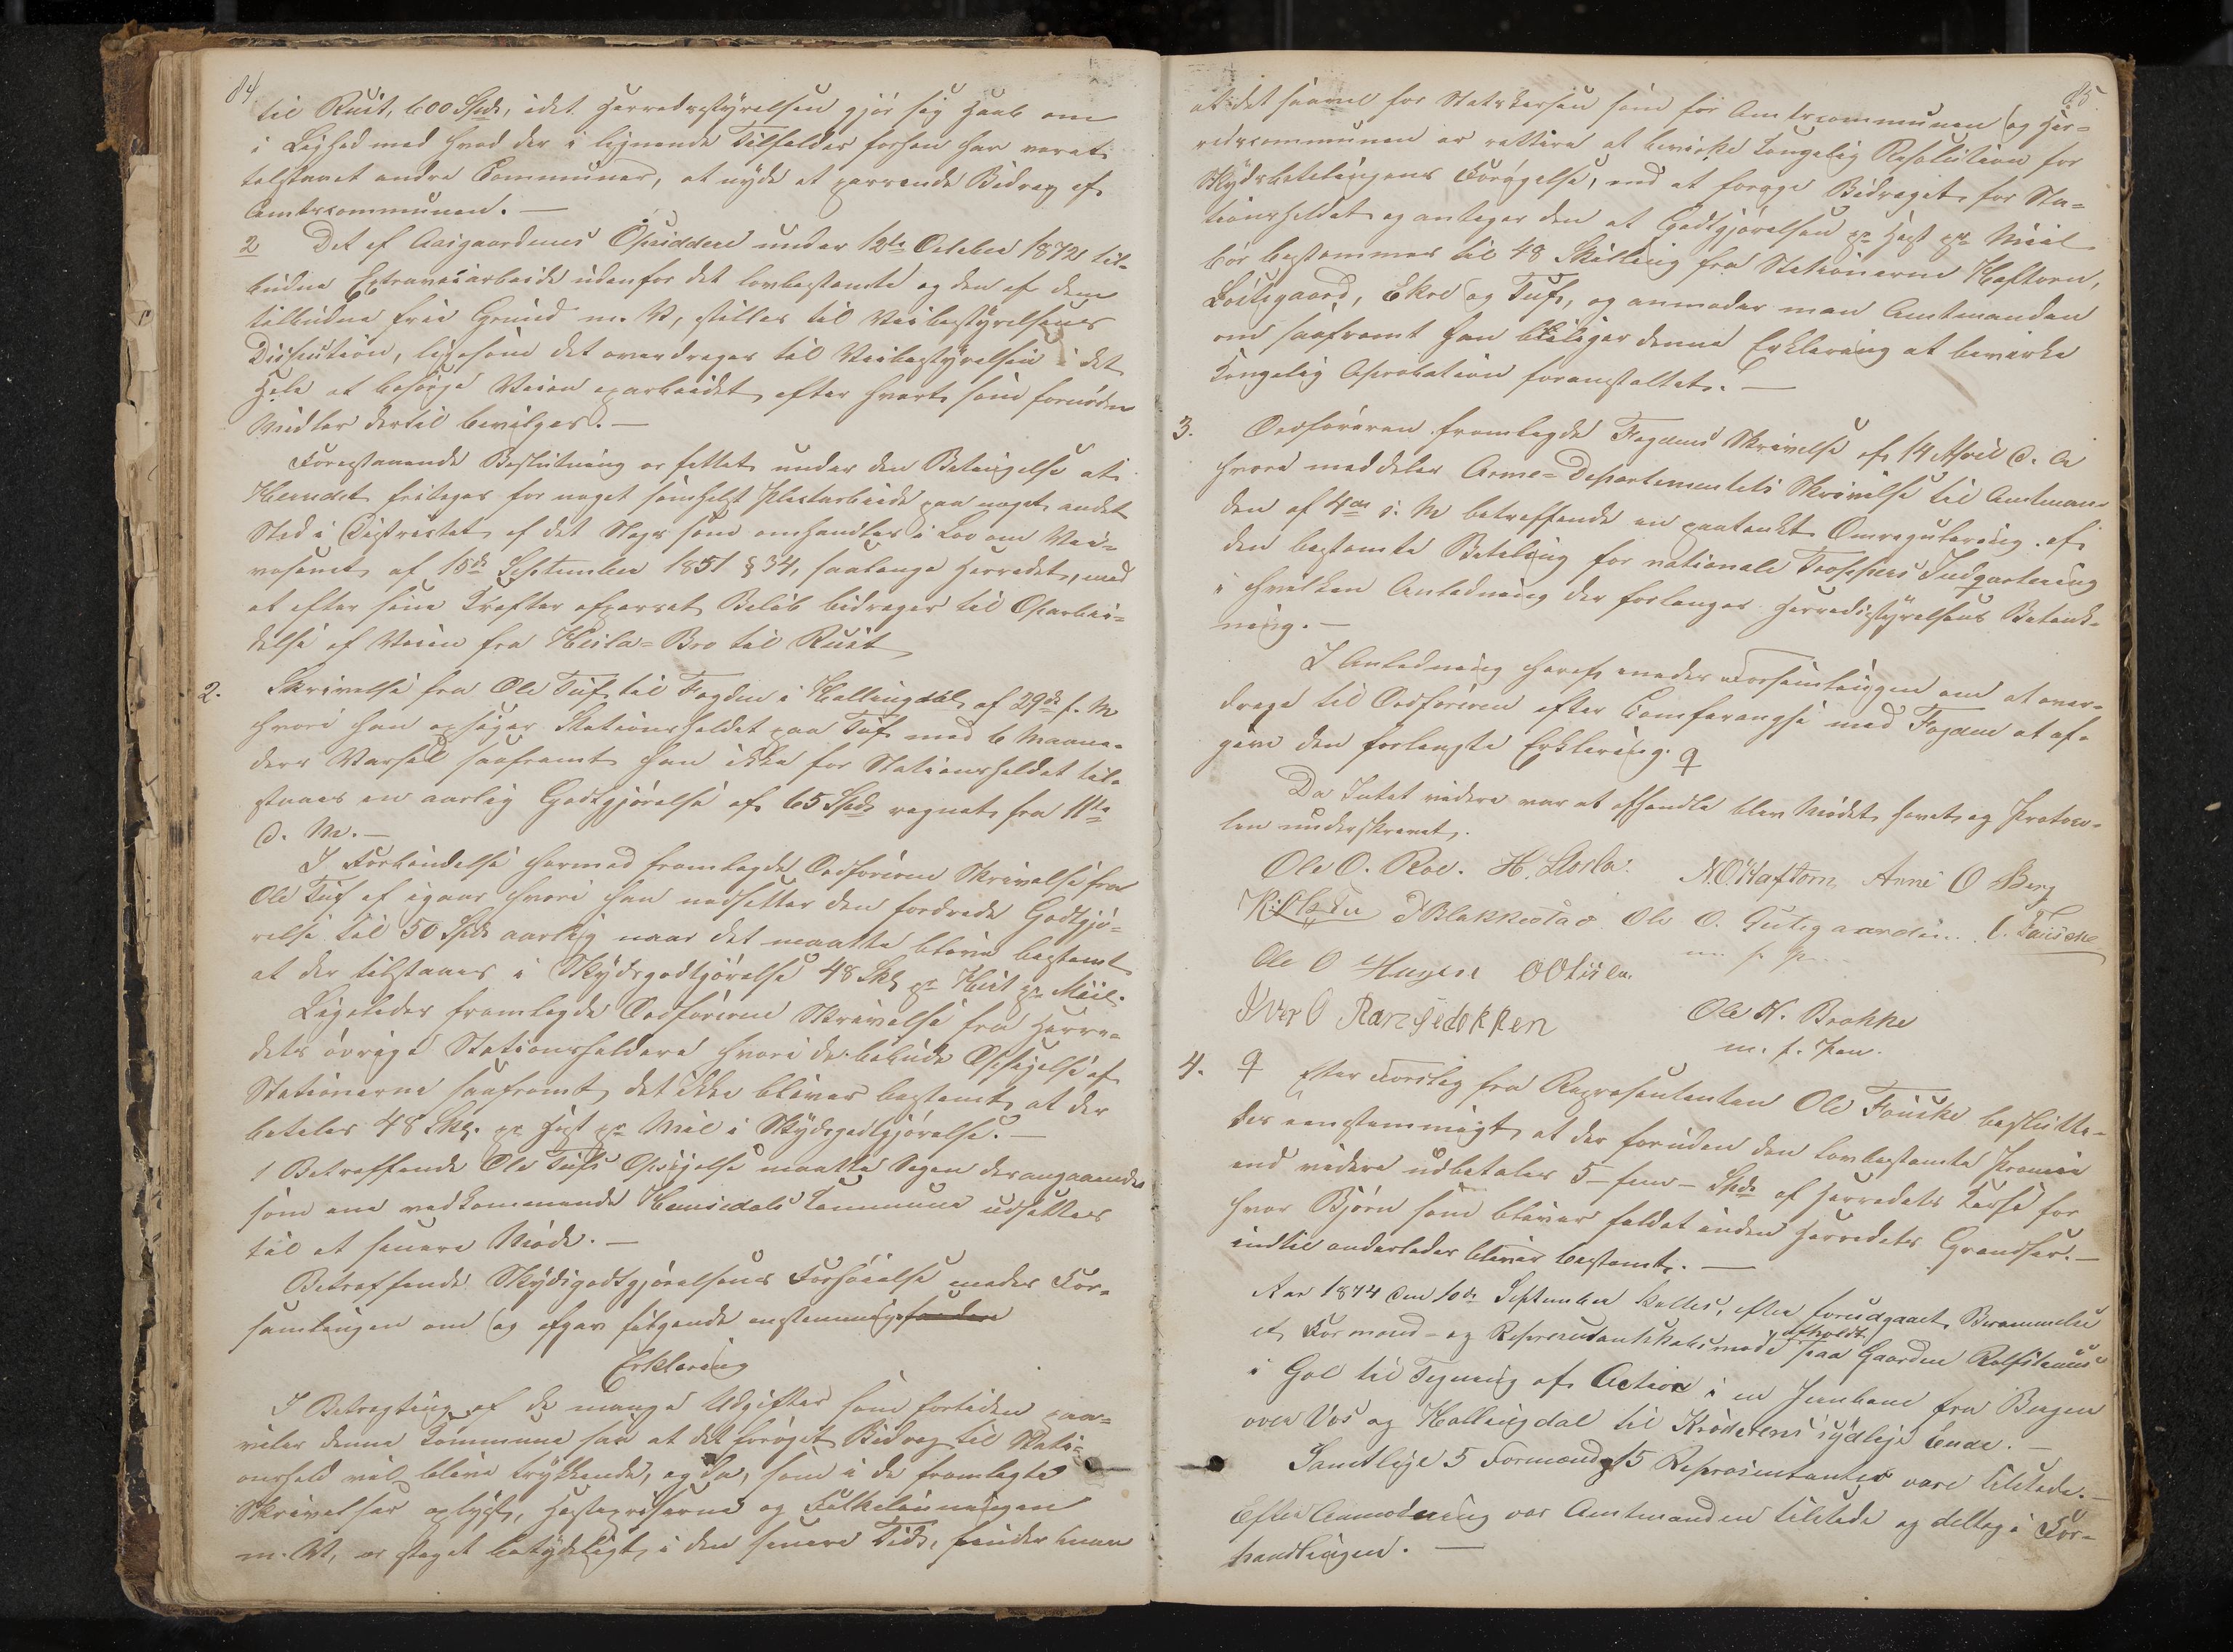 84
til Rust, 600 Spd, idet Herredsstyrelsen gjør sig Haab om
i Lighed med hvad der i lignende Tilfælder forhen har været
tilstaaet andre Communer, at nyde et passende Bidrag af
Amtscommunen. —
2 Det af Aasgaardenes Opsiddere under 12te October 1872 til-
budne Extraveiarbeide udenfor det lovbestemte og den af dem
tilbudne frie Grund m. V, stilles til Veibestyrelsens
Disposition, ligesom det overdrages til Veibestyrelsen i det
Hele at besørge Veien oparbeidet efter hvert som fornødne
Midler dertil bevilges. —
Forestaaende Beslutning er fattet under den Betingelse at
Herredet fritages for noget somhelst Pligtarbeide paa noget andet
Sted i Districtet af det Slags som omhandles i Lov om Vei-
væsenet af 15de September 1851 § 34, saalænge Herredet, med
et efter sine Kræfter afpasset Beløb bidrager til Oparbei-
delse af Veien fra Heslabro til Rust
2. Skrivelse fra Ole Tuf til Fogden i Hallingdal af 29de f. M
hvori han opsiger Stationsholdet paa Tuf med 6 Maane-
ders Varsel saafremt han ikke for Stationsholdet til-
staaes en aarlig Godtgjørelse af 65 Spd regnet fra 11te
d. M. —
I Forbindelse hermed fremlagde Ordføreren Skrivelse fra
Ole Tuf af igaar hvori han nedsætter den fordrede Godtgjø-
relse til 50 Spd aarlig naar det maatte blive bestemt
at der tilstaaes i Skydsgodtgjørelse 48 Skg pr Hest pr Miil.
Ligeledes fremlagde Ordføreren Skrivelse fra Herre-
dets øvrige Stationsholdere hvori de bebude Opsigelse af
Stationerne saafremt det ikke bliver bestemt at der
betales 48 Skg. pr Hest pr Mil i Skydsgodtgjørelse. —
1 Betræffende Ole Tufs Opsigelse maatte Sagen derangaaende
som ene vedkommende Hemsedals Commune udsættes
til et senere Møde. —
Betræffende Skydsgodtgjørelsens Forhøielse enedes For-
samlingen om og afgav følgende enstemmige
Erklæring
I Betragtning af de mange Udgifter som fortiden paa-
hviler denne Commune saa at det forøget Bidrag til Stati-
onshold vil blive trykkende, og da, som i de fremlagte
Skrivelser oplyst, Hestepriserne og Folkelønningen
m. V, er steget betydeligt i den senere Tid, finder man
85
at det saavel for Statskassen som for Amtscommunen og Her-
redscommunen er rettere at bevirke Kongelig Resolution for
Skydsbetalingens Forøgelse, end at forøge Bidraget for Sta-
tionsholdet og antager den at Godtgjørelsen pr Hest pr Miil
bør bestemmes til 48 Skilling fra Stationerne Haftorn,
Løstegaard, Ekre og Tuf, og anmoder man Amtmanden
om saafremt han billiger denne Erklæring at bevirke
Kongelig Aprobation foranstaltet. —
3. Ordføreren fremlagde Fogdens Skrivelse af 14 April d. A
hvori meddeles Arme-Departementets Skrivelse til Amtman-
den af 4de s. M betreffende en paatænkt Omregulering af
den bestemte Betaling for nationale Troppers Indqvartering
i hvilken Anledning der forlanges Herredsstyrelsens Betænk-
ning. —
I Anledning heraf enedes Forsamlingen om at over-
drage til Ordføreren efter Comferangse med Fogden at af-
give den forlangte Erklæring. ♀
Da Intet videre var at afhandle blev Mødet hævet og Protoco-
len underskrevet.
Ole O. Roe. H. Storla. N. O. Haftorn Arne O Berg
T Blakkestad Ole O. Gutegaarden. O. Fauske
m. f. P.
Ole O Hagen
Iver O Randsedokken Ole K. Brokke
m. f. Pen.
4. ♀ Efter Forslag fra Representanten Ole Fauske beslutte-
des eenstemmigt at der foruden den lovbestemte Premie
end videre udbetales 5 – fem – Spd af Herredets Kasse for
hver Bjørn som bliver fældet inden Herredets Grændser. —
indtil anderledes bliver bestemt. —
Aar 1874 den 10de September holdtes, efter forudgaaet Berammelse
et Formand- og Representantskabsmøde afholdt paa Gaarden Rolfshuus
i Gol til Tegning af Actier i en Jernbane fra Bergen
over Vos og Hallingdal til Krøderens sydlige Ende. —
Samtlige 5 Formænd og 15 Repræsentanter vare tilstede. —
Efter Anmodning var Amtmanden tilstede og deltog i For-
handlingen. —